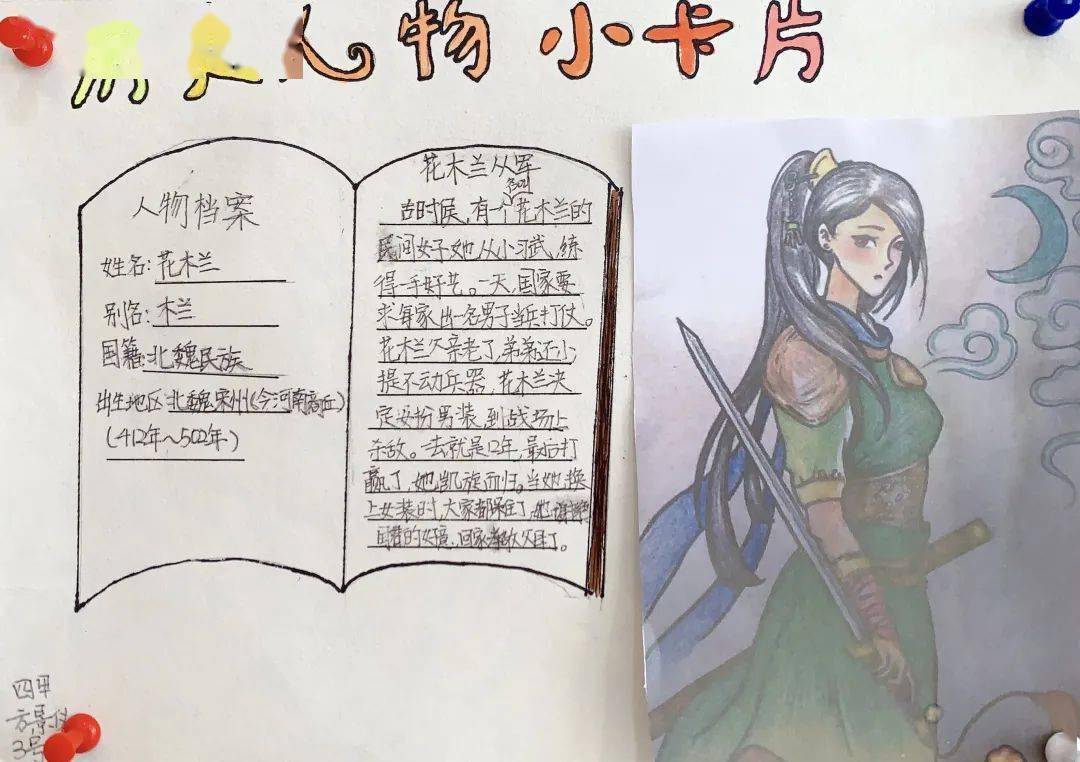 人物小卡片
人物档案
姓名:花木兰
别名:木兰
国籍:北魏民族
出生地区:北魏宋州(今河南商丘)
(412年~502年)
花木兰从军
名叫
古时侯,有一个花木兰的
民间女子她从小习武,练
得一手好艺。一天,国家要
求每家出一名男子当兵打仗。
花木兰父亲老了,弟弟还小,
提不动兵器,花木兰决
定女扮男装,到战场上
杀敌。一去就是12年,最后打
赢了,她凯旋而归。当她换
上女装时,大家都呆住了,她
的女孩,回家
四甲
3号